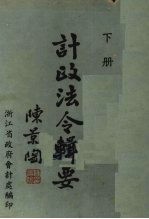 下册
計政法令輯要
陳景陶
浙江省政府會計處編印